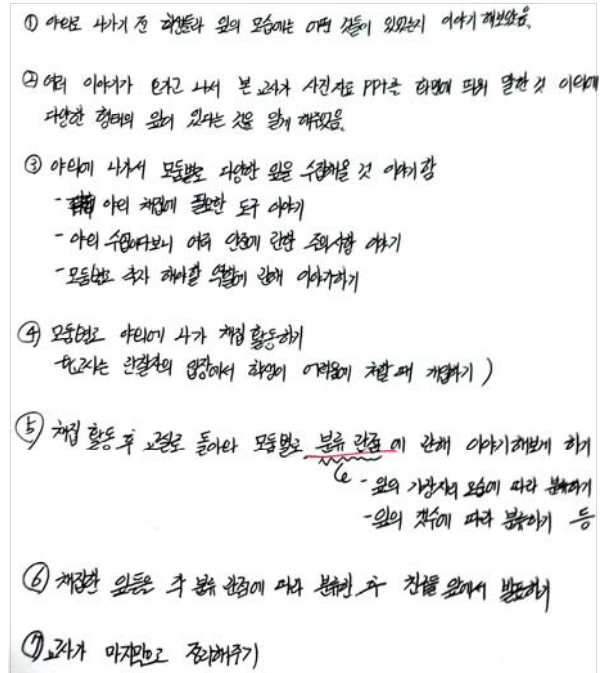 ① 야외로 나가기 전 학생들과 잎의 모습에는 어떤 것들이 있었는지 이야기 해보았음.
② 여러 이야기가 오가고 나서 본 교사가 사진자료 PPT를 화면에 띄워 말한 것 이외에
다양한 형태의 잎이 있다는 것을 알게 해주었음.
③ 야외에 나가서 모둠별로 다양한 잎을 수집해올 것 이야기함
- 야외 채집에 필요한 도구 이야기
- 야외 수업이다보니 여러 안전에 관한 주의사항 이야기
- 모둠별로 각자 해야할 역할에 관해 이야기하기
④ 모둠별로 야외에 나가 채집 활동하기
교사는 관찰자의 입장에서 학생이 어려움에 처할 때 개입하기 )
⑤ 채집 활동 후 교실로 돌아와 모둠별로 분류 관점에 관해 이야기해보게 하기
- 잎의 가장자리 모습에 따라 분류하기
- 잎의 갯수에 따라 분류하기 등
⑥ 채집한 잎들을 각 분류 관점에 따라 분류한 후 친구들 앞에서 발표하기
⑦ 교사가 마지막으로 정리해주기